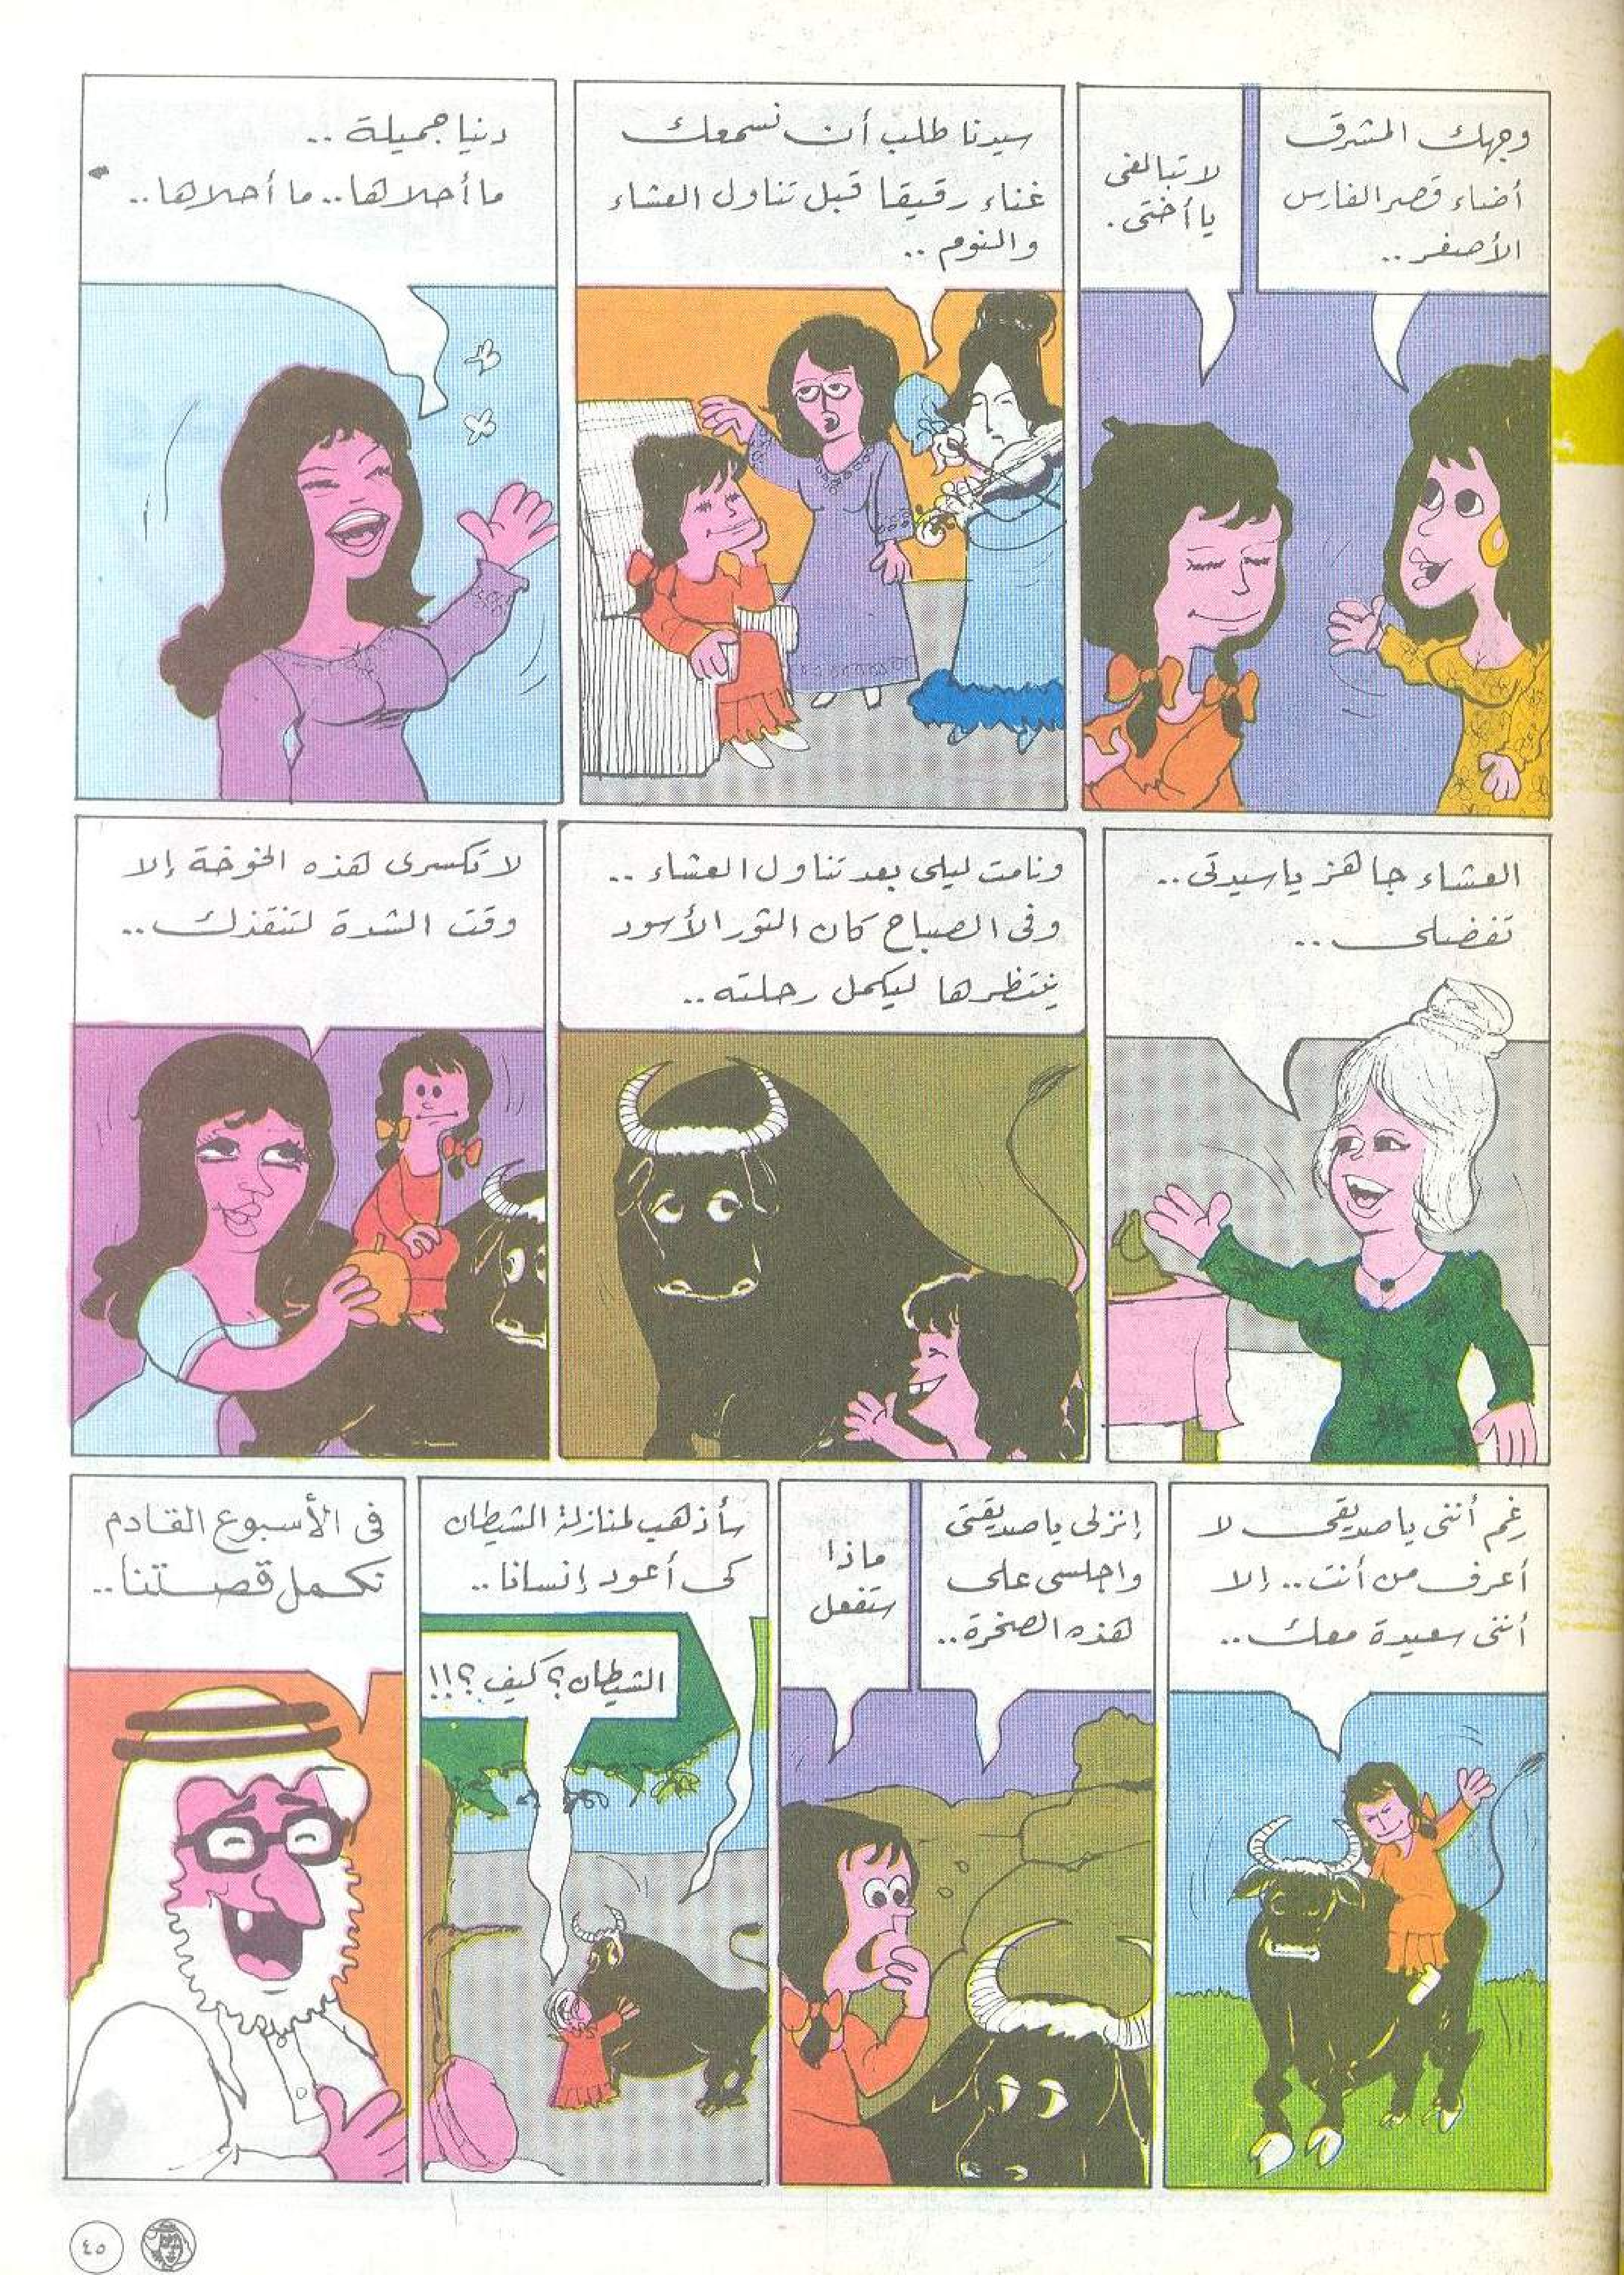 وجهك المشرق
أضاء قصر الفارس
الأصفر..
لا تبالغى
يا أختى.
سيدنا طلب أن نسمعك
غناء رقيقا قبل تناول العشاء
والنوم..
دنيا جميلة..
ما أحلاها.. ما أحلاها..
العشاء جاهز يا سيدتى..
تفضلى..
ونامت ليلى بعد تناول العشاء..
وفى الصباح كان الثور الأسود
ينتظرها ليكمل رحلته..
لا تكسرى هذه الخوخة إلا
وقت الشدة لتنقذك..
رغم أننى يا صديقى لا
أعرف من أنت.. إلا
أننى سعيدة معك..
إنزلى يا صديقتى
واجلسى على
هذه الصخرة..
ماذا
ستفعل
سأذهب لمنازلة الشيطان
كى أعود إنسانا..
الشيطان؟ كيف؟!!
فى الأسبوع القادم
نكمل قصتنا..
٤٥